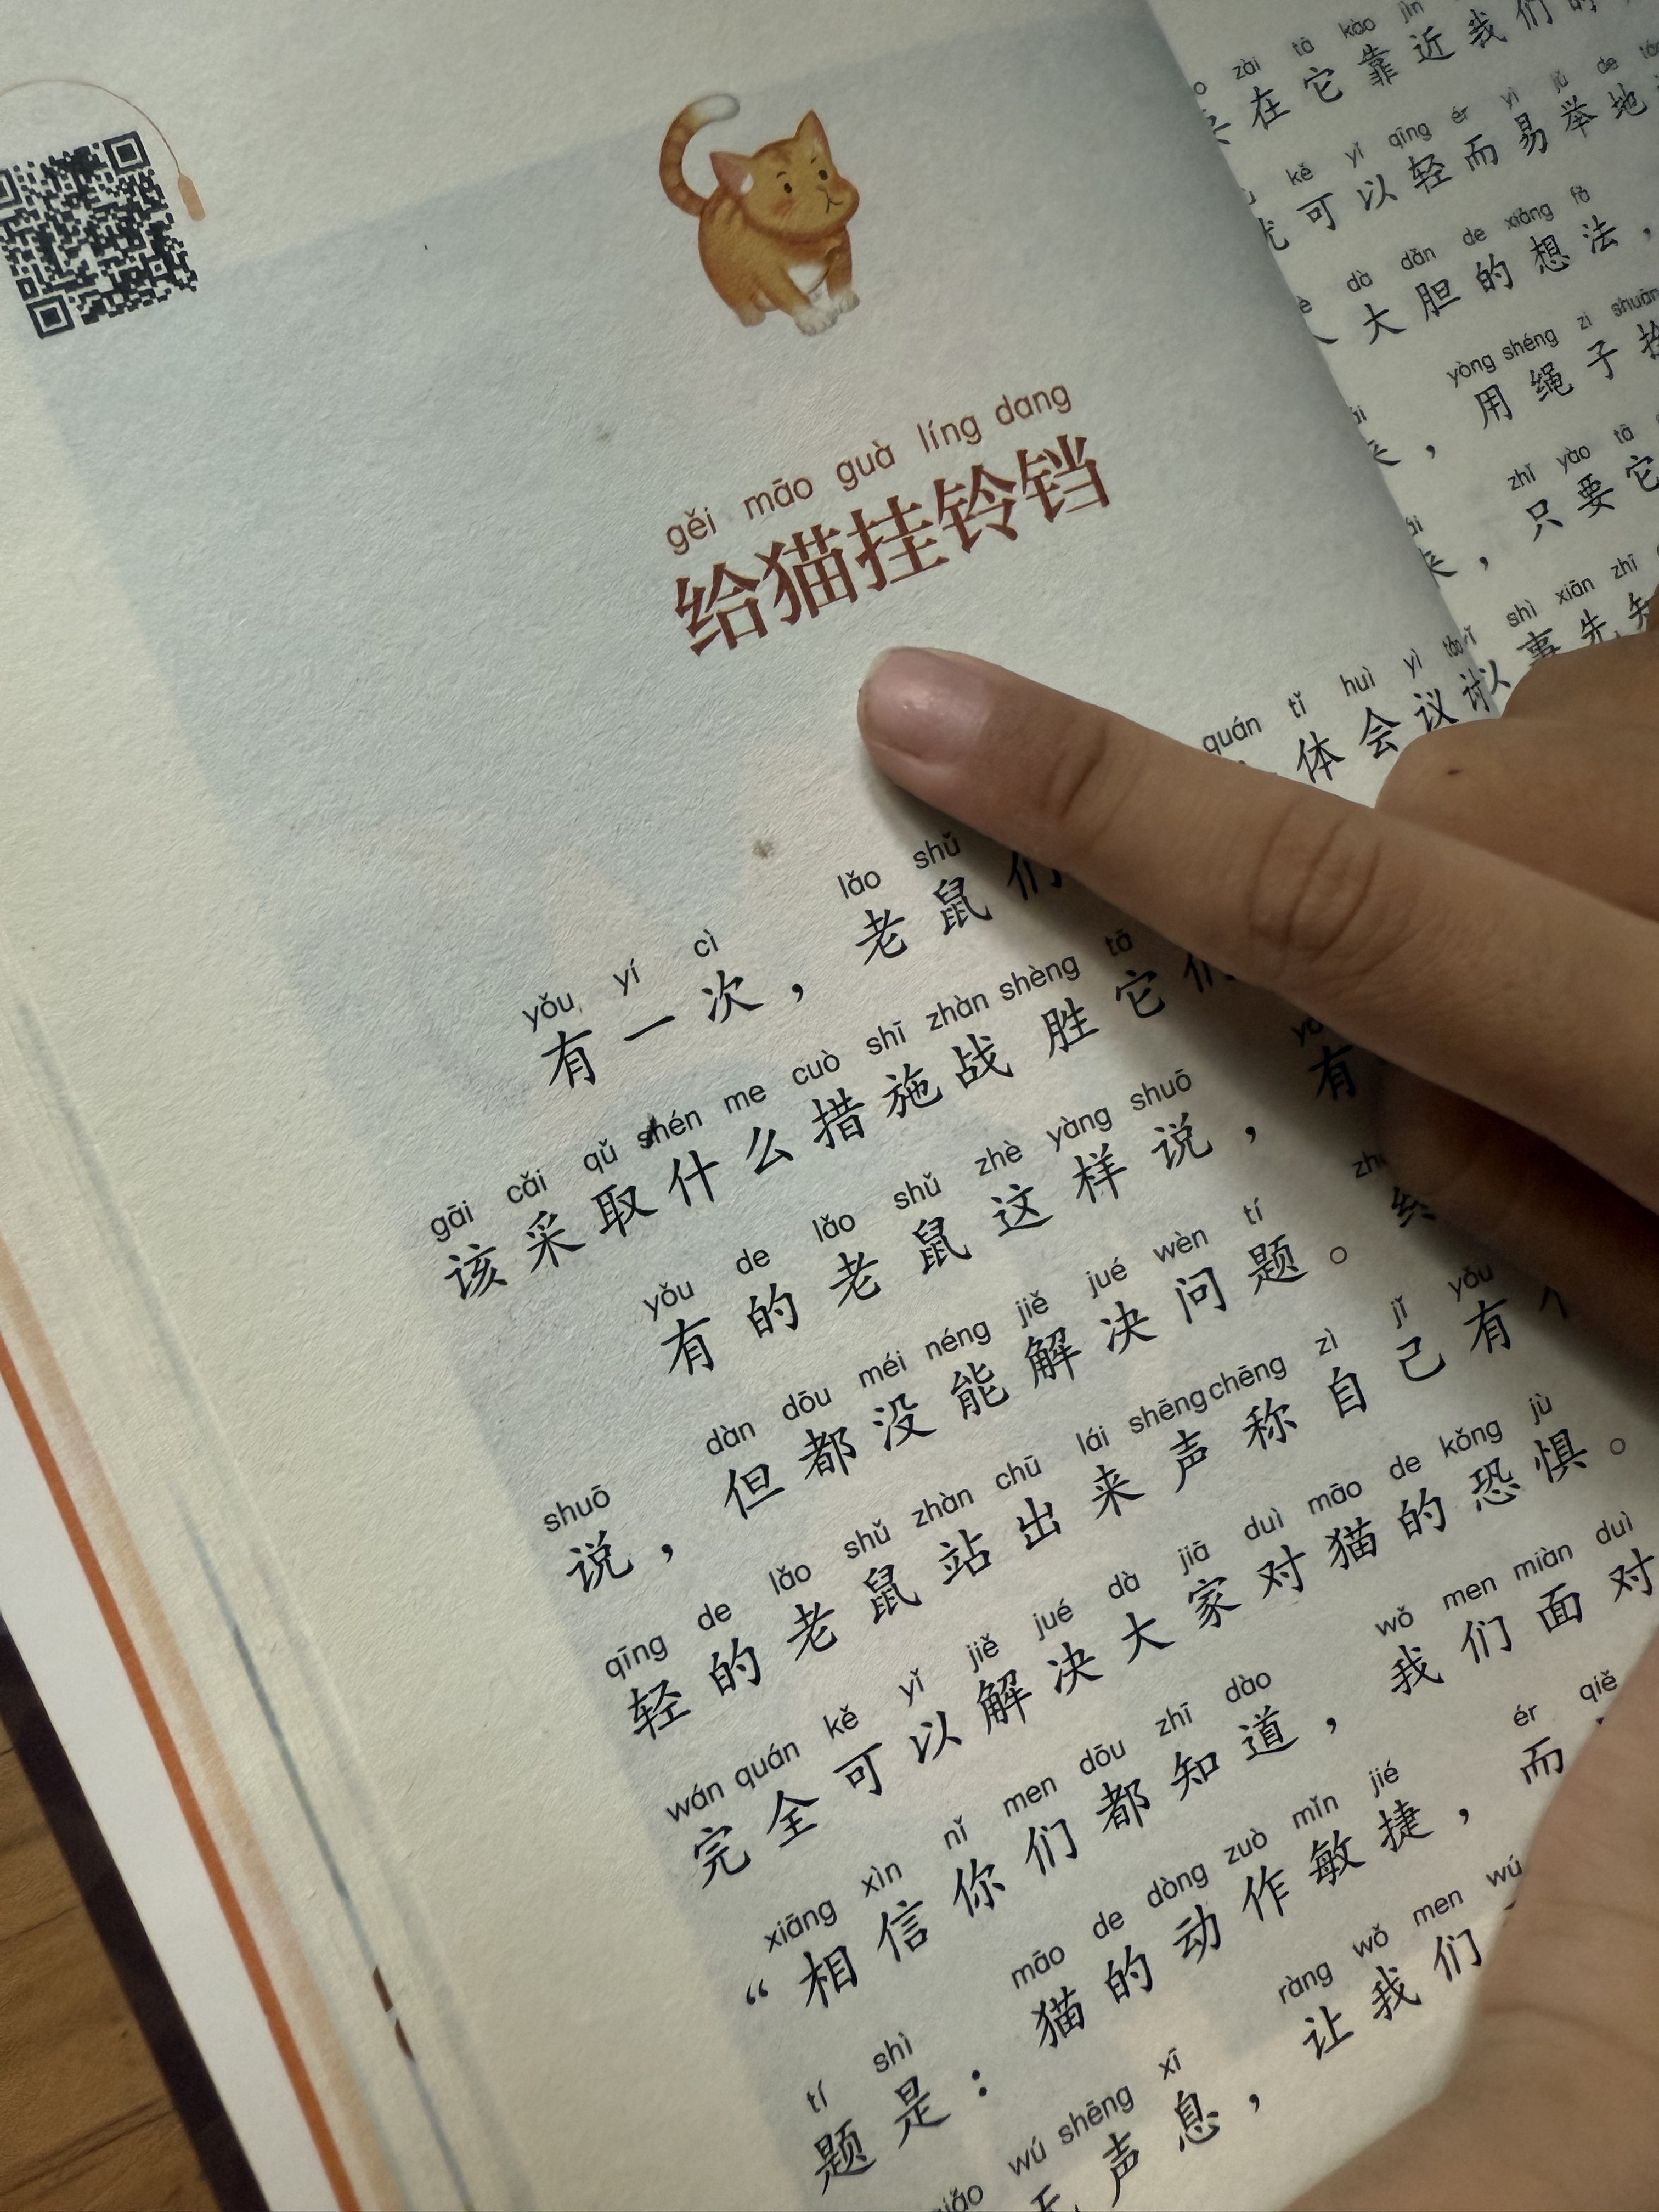 gěi māo guà líng dang
给猫挂铃铛
yǒu yí cì lǎo shǔ
有一次，老鼠们
gāi cǎi qǔ shén me cuò shī zhàn shèng tā
该采取什么措施战胜它们
yǒu de lǎo shǔ zhè yàng shuō
有的老鼠这样说，有
shuō dàn dōu méi néng jiě jué wèn tí
说，但都没能解决问题。
qīng de lǎo shǔ zhàn chū lái shēng chēng zì jǐ yǒu
轻的老鼠站出来声称自己有
wán quán kě yǐ jiě jué dà jiā duì māo de kǒng jù
完全可以解决大家对猫的恐惧。
xiāng xìn nǐ men dōu zhī dào wǒ men miàn duì
“相信你们都知道，我们面对
tí shì māo de dòng zuò mǐn jié ér qiě
题是：猫的动作敏捷，而
wú shēng xī ràng wǒ men wú
无声息，让我们
quán tǐ huì yì
体会议讨
zài tā kào jìn
在它靠近我们的
kě yǐ qīng ér yì jǔ de
可以轻而易举地
dà dǎn de xiǎng fǎ
大胆的想法，
yòng shéng zi shuān
，用绳子拴
zhǐ yào tā
，只要它
shì xiān zhī
以事先知